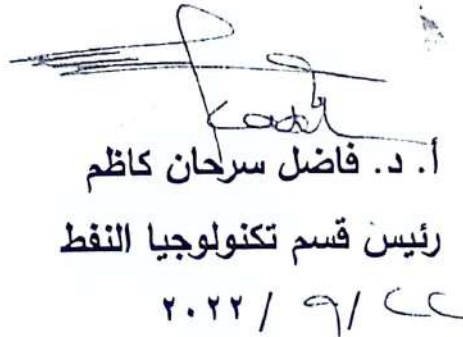 أ. د. فاضل سرحان كاظم
رئيس قسم تكنولوجيا النفط
٢٢ / ٩ / ٢٠٢٢